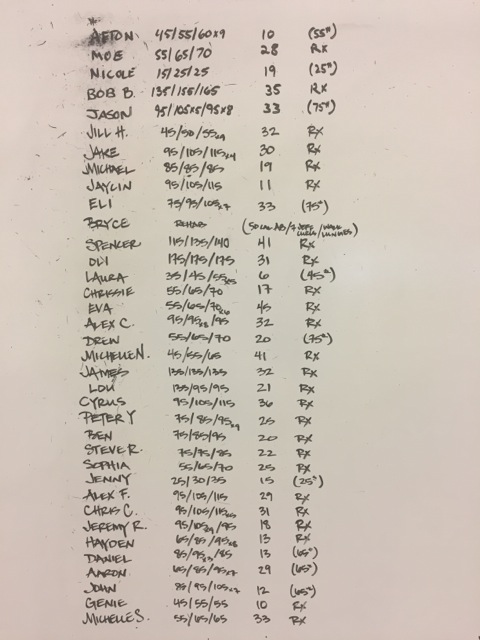 *
AFTON 45/55/60x9 10 (55#)
MOE 55/65/70 28 RX
NICOLE 15/25/25 19 (25#)
BOB B. 135/155/165 35 RX
JASON 95/105x5/95x8 33 (75#)
JILL H. 45/50/55x9 32 RX
JAKE 95/105/115x4 30 RX
MICHAEL 85/85/85 19 RX
JAYLIN 95/105/115 11 RX
ELI 75/95/105x7 33 (75#)
BRYCE REHAB (50 CAL AB/7
SPENCER 115/135/140 41 RX
OLI 175/175/175 31 RX
LAURA 35/45/55x5 6 (45#)
CHRISSIE 55/65/70 17 RX
EVA 55/65/70x6 45 RX
ALEX C. 95/95x8/95 32 RX
DREW 55/65/70 20 (75#)
MICHELLE N. 45/55/65 41 RX
JAMES 135/135/135 32 RX
LOU 135/95/95 21 RX
CYRUS 95/105/115 36 RX
PETER Y 75/85/95x9 25 RX
BEN 75/85/95 20 RX
STEVE R. 75/75/85 22 RX
SOPHIA 55/65/70 25 RX
JENNY 25/30/35 15 (25#)
ALEX F. 95/105/115 29 RX
CHRIS C. 95/105/115x5 31 RX
JEREMY R. 95/105x9/95 18 RX
HAYDEN 65/85/95x8 13 RX
DANIEL 85/95x3/85 13 (65#)
AARON 65/85/95x7 29 (65#)
JOHN 85/95/105x7 12 (65#)
GENIE 45/55/55 10 RX
MICHELLE S. 55/65/65 33 RX